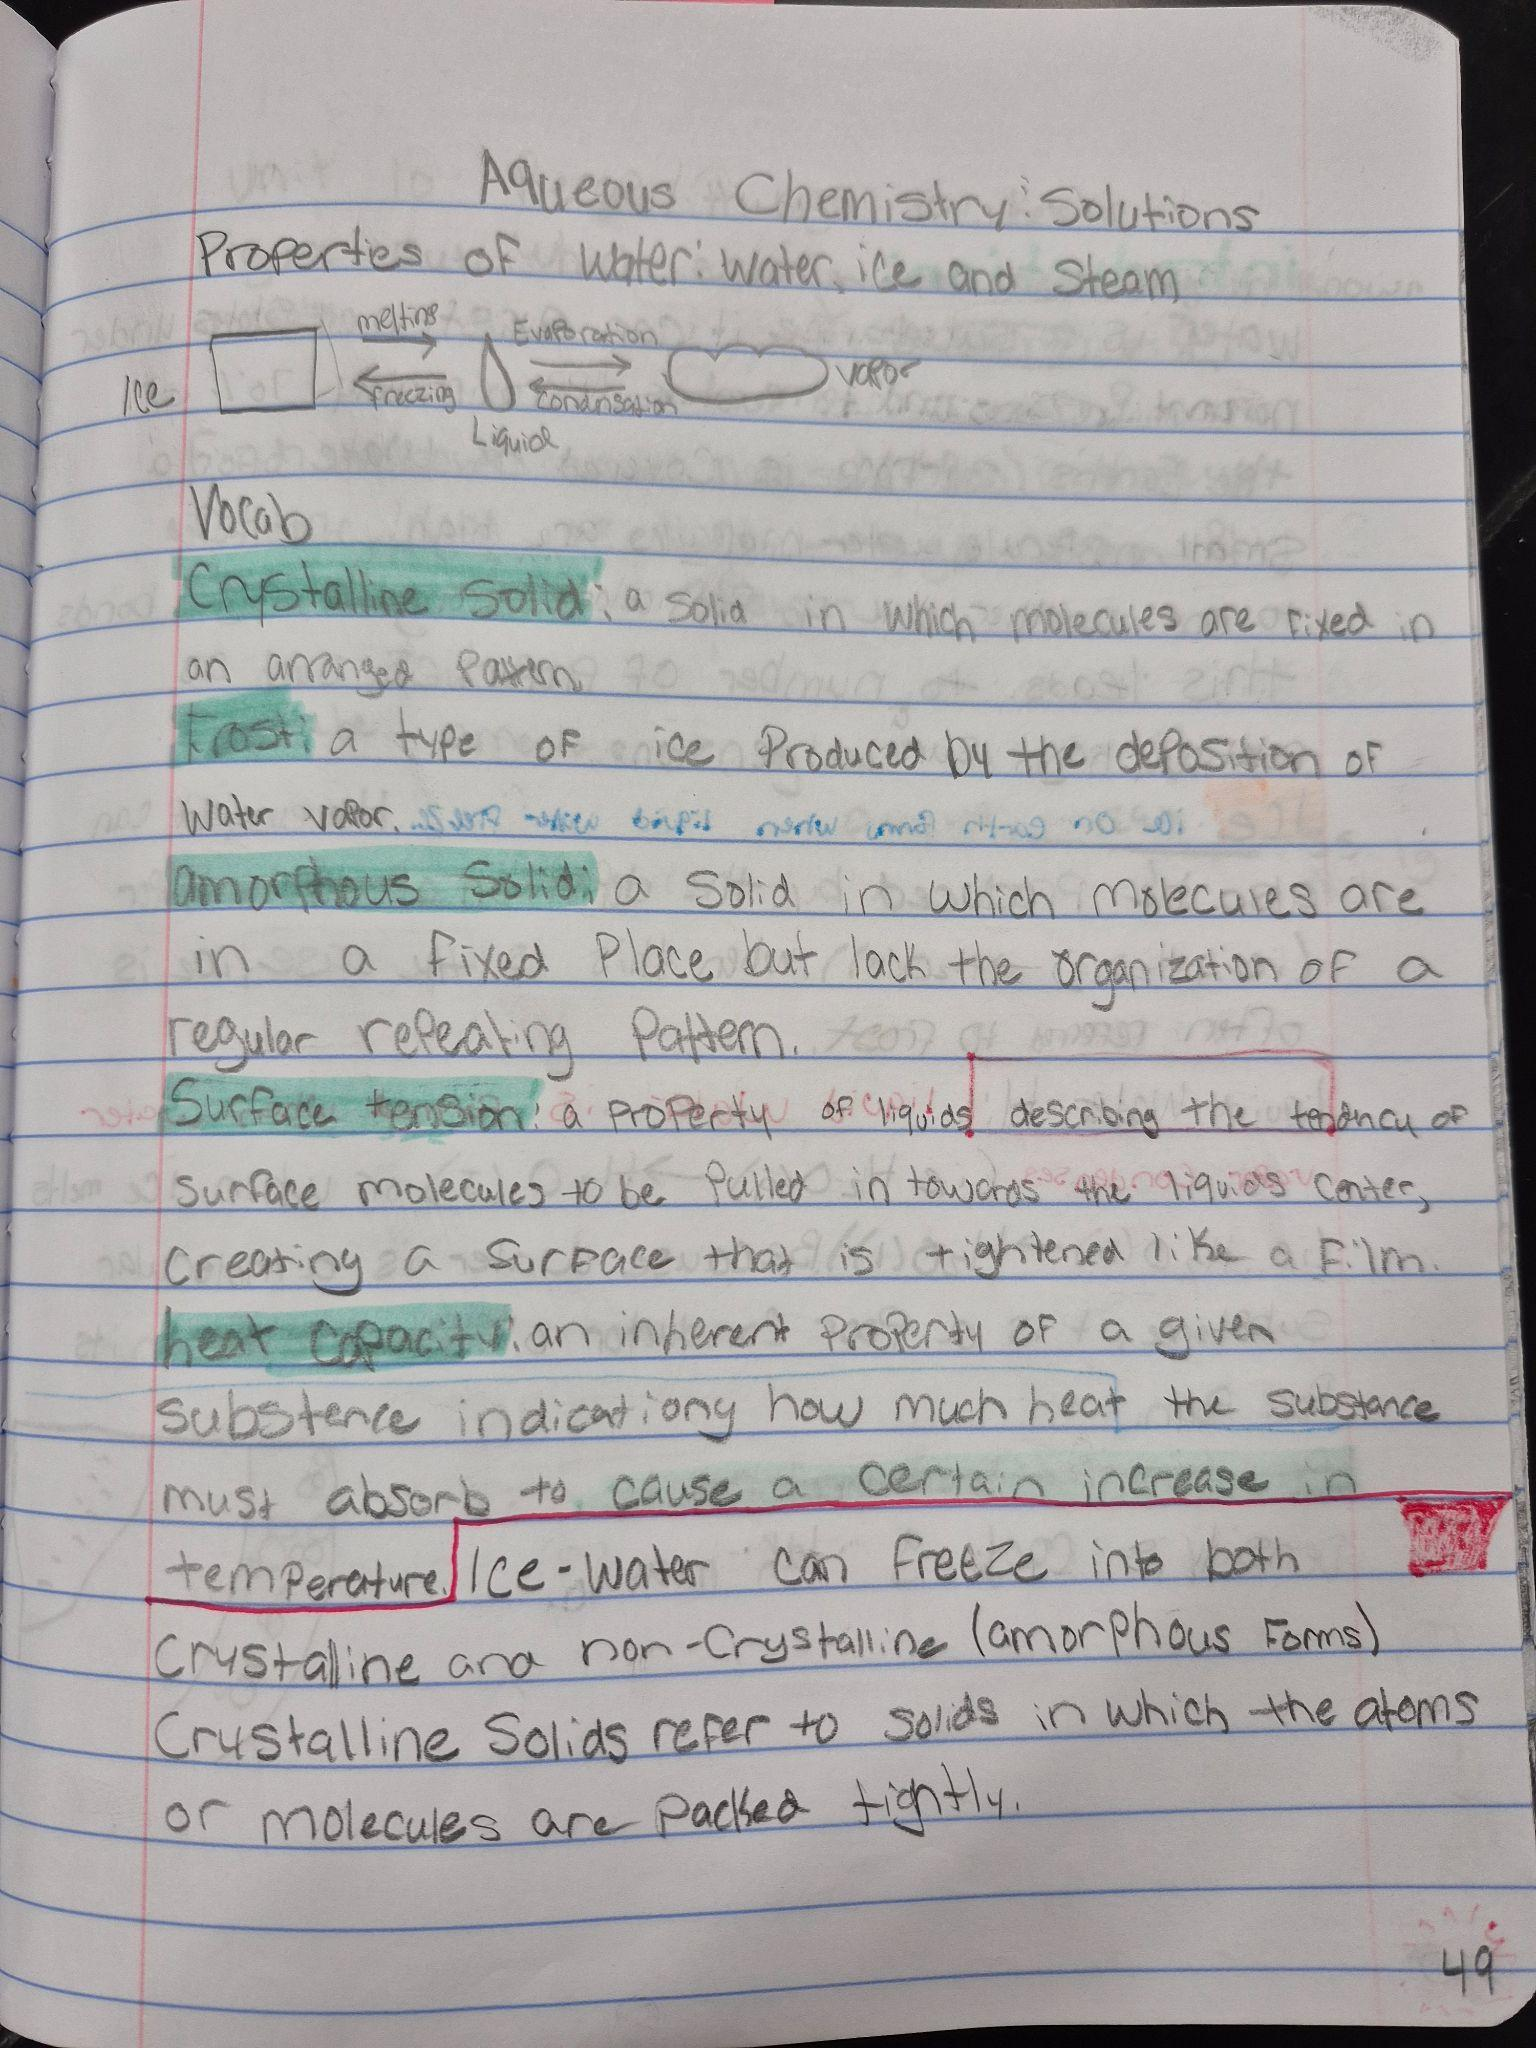 Aqueous Chemistry: Solutions
Properties of water: water, ice and steam
melting
Evaporation
Ice
vapor
freezing
Condinsation
Liquid
Vocab
Crystalline Solid: a solid in which molecules are fixed in
an arranged pattern.
Frost: a type of ice produced by the deposition of
water vapor.
amorphous Solid: a solid in which molecules are
in a fixed place but lack the organization of a
regular repeating pattern.
Surface tension: a property of liquids describing the tendncy of
surface molecules to be pulled in towards the liquids center,
creating a surface that is tightened like a film.
heat capacity: an inherent property of a given
substence indicationy how much heat the substance
must absorb to cause a certain increase in
temperature. Ice-water can freeze into both
Crystalline and non-Crystalline (amorphous forms)
Crystalline Solids refer to solids in which the atoms
or molecules are packed tightly.
49